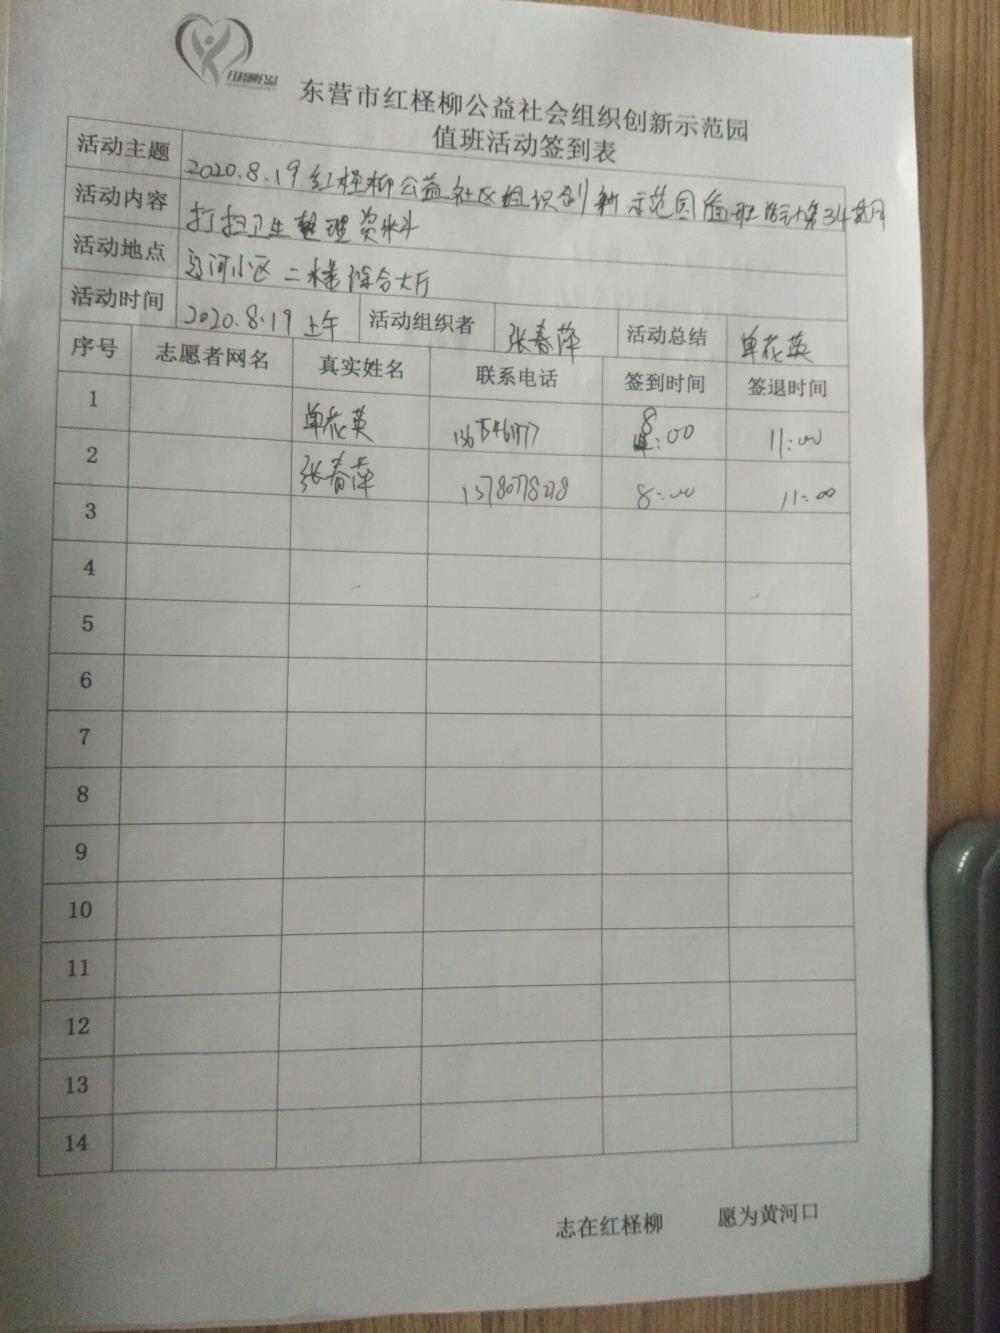 东营市红柽柳公益社会组织创新示范园
值班活动签到表
活动主题 2020.8.19红柽柳公益社区组织创新示范园值班活动第34期
活动内容 打扫卫生整理资料
活动地点 河小区二楼综合大厅
活动时间 2020.8.19上午 活动组织者 张春萍 活动总结 单花英
序号 志愿者网名 真实姓名 联系电话 签到时间 签退时间
1 单花英 8:00 11:00
2 张春萍 8:00 11:00
3
4
5
6
7
8
9
10
11
12
13
14
志在红柽柳 愿为黄河口